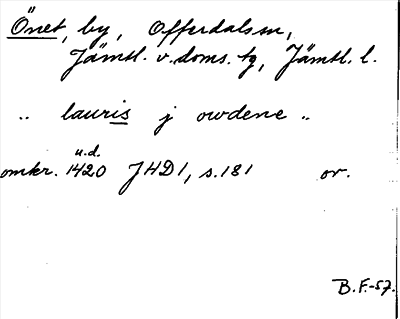 Önet, by, Offerdals sn,
Jämtl. v. doms. tg, Jämtl. l.
„ lauris j owdene „
u.d.
omkr. 1420 JHD 1, s. 181 or.
B.F.-57.